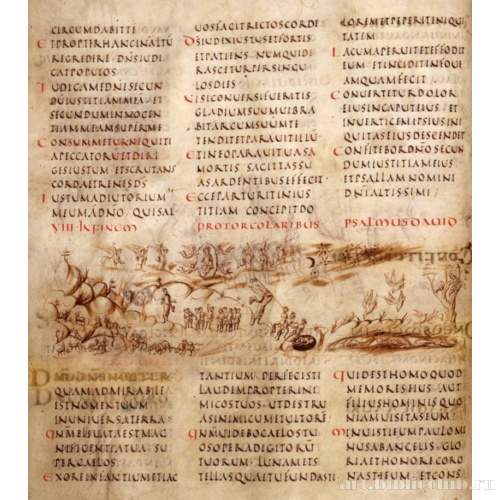 CIRCUMDABITTE
ETPROPTERHANCINALTU
REGREDERE DNSIUDI
CATPOPULOS
IUDICAMEDNESECUN
DUIUSTITIAMMEA ET
SECUNDUMINNOCEN
TIAMMEAMSUPERME
CONSUMMETURNEQUITI
APECCATORUETDIRI
GESIUSTUM ETSCRUTANS
CORDAETRENESDS
IUSTUMADIUTORIUM
MEUMADNO QUISAL
UOSFACITRECTOSCORDE
DSIUDEXIUSTUSETFORTIS
ETPATIENS NUMQUIDI
RASCETURPERSINGU
LOSDIES
NISICONUERSIFUERITIS
GLADIUMSUUMUIBRA
BITARCUMSUUMTE
TENDITETPARAUITILLU
ETINEOPARAUITUASA
MORTIS SAGITTASSU
ASARDENTIBUSEFFECIT
ECCEPARTURITINIUS
TITIAM CONCEPITDO
LOREMETPEPERITINIQUI
TATEM
LACUMAPERUITETEFFODIT
EUM ETINCIDITINFOUE
AMQUAMFECIT
CONUERTETURDOLOR
EIUSINCAPUTEIUS ET
INUERTICEMIPSIUSINI
QUITASEIUSDESCENDET
CONFITEBORDNOSECUN
DUMIUSTITIAMEIUS
ETPSALLAMNOMINI
DNIALTISSIMI
VIII INFINEM PROTORCOLARIBUS PSALMUSDAUID
QUAMADMIRABILE
ESTNOMENTUUM
INUNIUERSATERRA
QNMELEUATAESTMAG
NIFICENTIATUASU
PERCAELOS
EXOREINFANTIUMETLAC
TANTIUM PERFECISTI
LAUDEMPROPTERINI
MICOSTUOS UTDESTRU
ASINIMICUMETULTORE
QNMUIDEBOCAELOSTU
OSOPERADIGITORU
TUORUM LUNAMETS
TELLASQUAETUFUNDASTI
QUIDESTHOMOQUOD
MEMORESHIUS AUT
FILIUSHOMINISQUO
NIAMUISITASEUM
MINUISTIEUMPAULOMI
NUSABANGELIS GLO
RIAETHONORECORO
NASTIEUM ETCONS